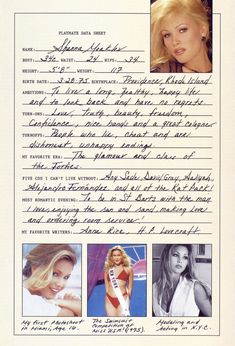 PLAYMATE DATA SHEET
NAME: Shanna Moakler
BUST: 34C WAIST: 24 HIPS: 34
HEIGHT: 5'8" WEIGHT: 117
BIRTH DATE: 3-28-75 BIRTHPLACE: Providence, Rhode Island
AMBITIONS: To live a long, healthy, happy life
and to look back and have no regrets.
TURN-ONS: Love, Truth, beauty, freedom,
Confidence, nice hands and a great cologne
TURNOFFS: People who lie, cheat and are
dishonest, unhappy endings
MY FAVORITE ERA: The glamour and class of
the Forties.
FIVE CDS I CAN'T LIVE WITHOUT: Any Sade, David Gray, Aaliyah,
Alejandro Fernández and all of the Rat Pack!
MOST ROMANTIC EVENING: To be in St. Barts with the man
I love, enjoying the sun and sand, making love
and ordering room service!
MY FAVORITE WRITERS: Anne Rice, H.P. Lovecraft
My first Photoshoot
in Miami, Age 16.
The Swimsuit
Competition at
Miss USA (1995).
Modeling and
Acting in N.Y.C.